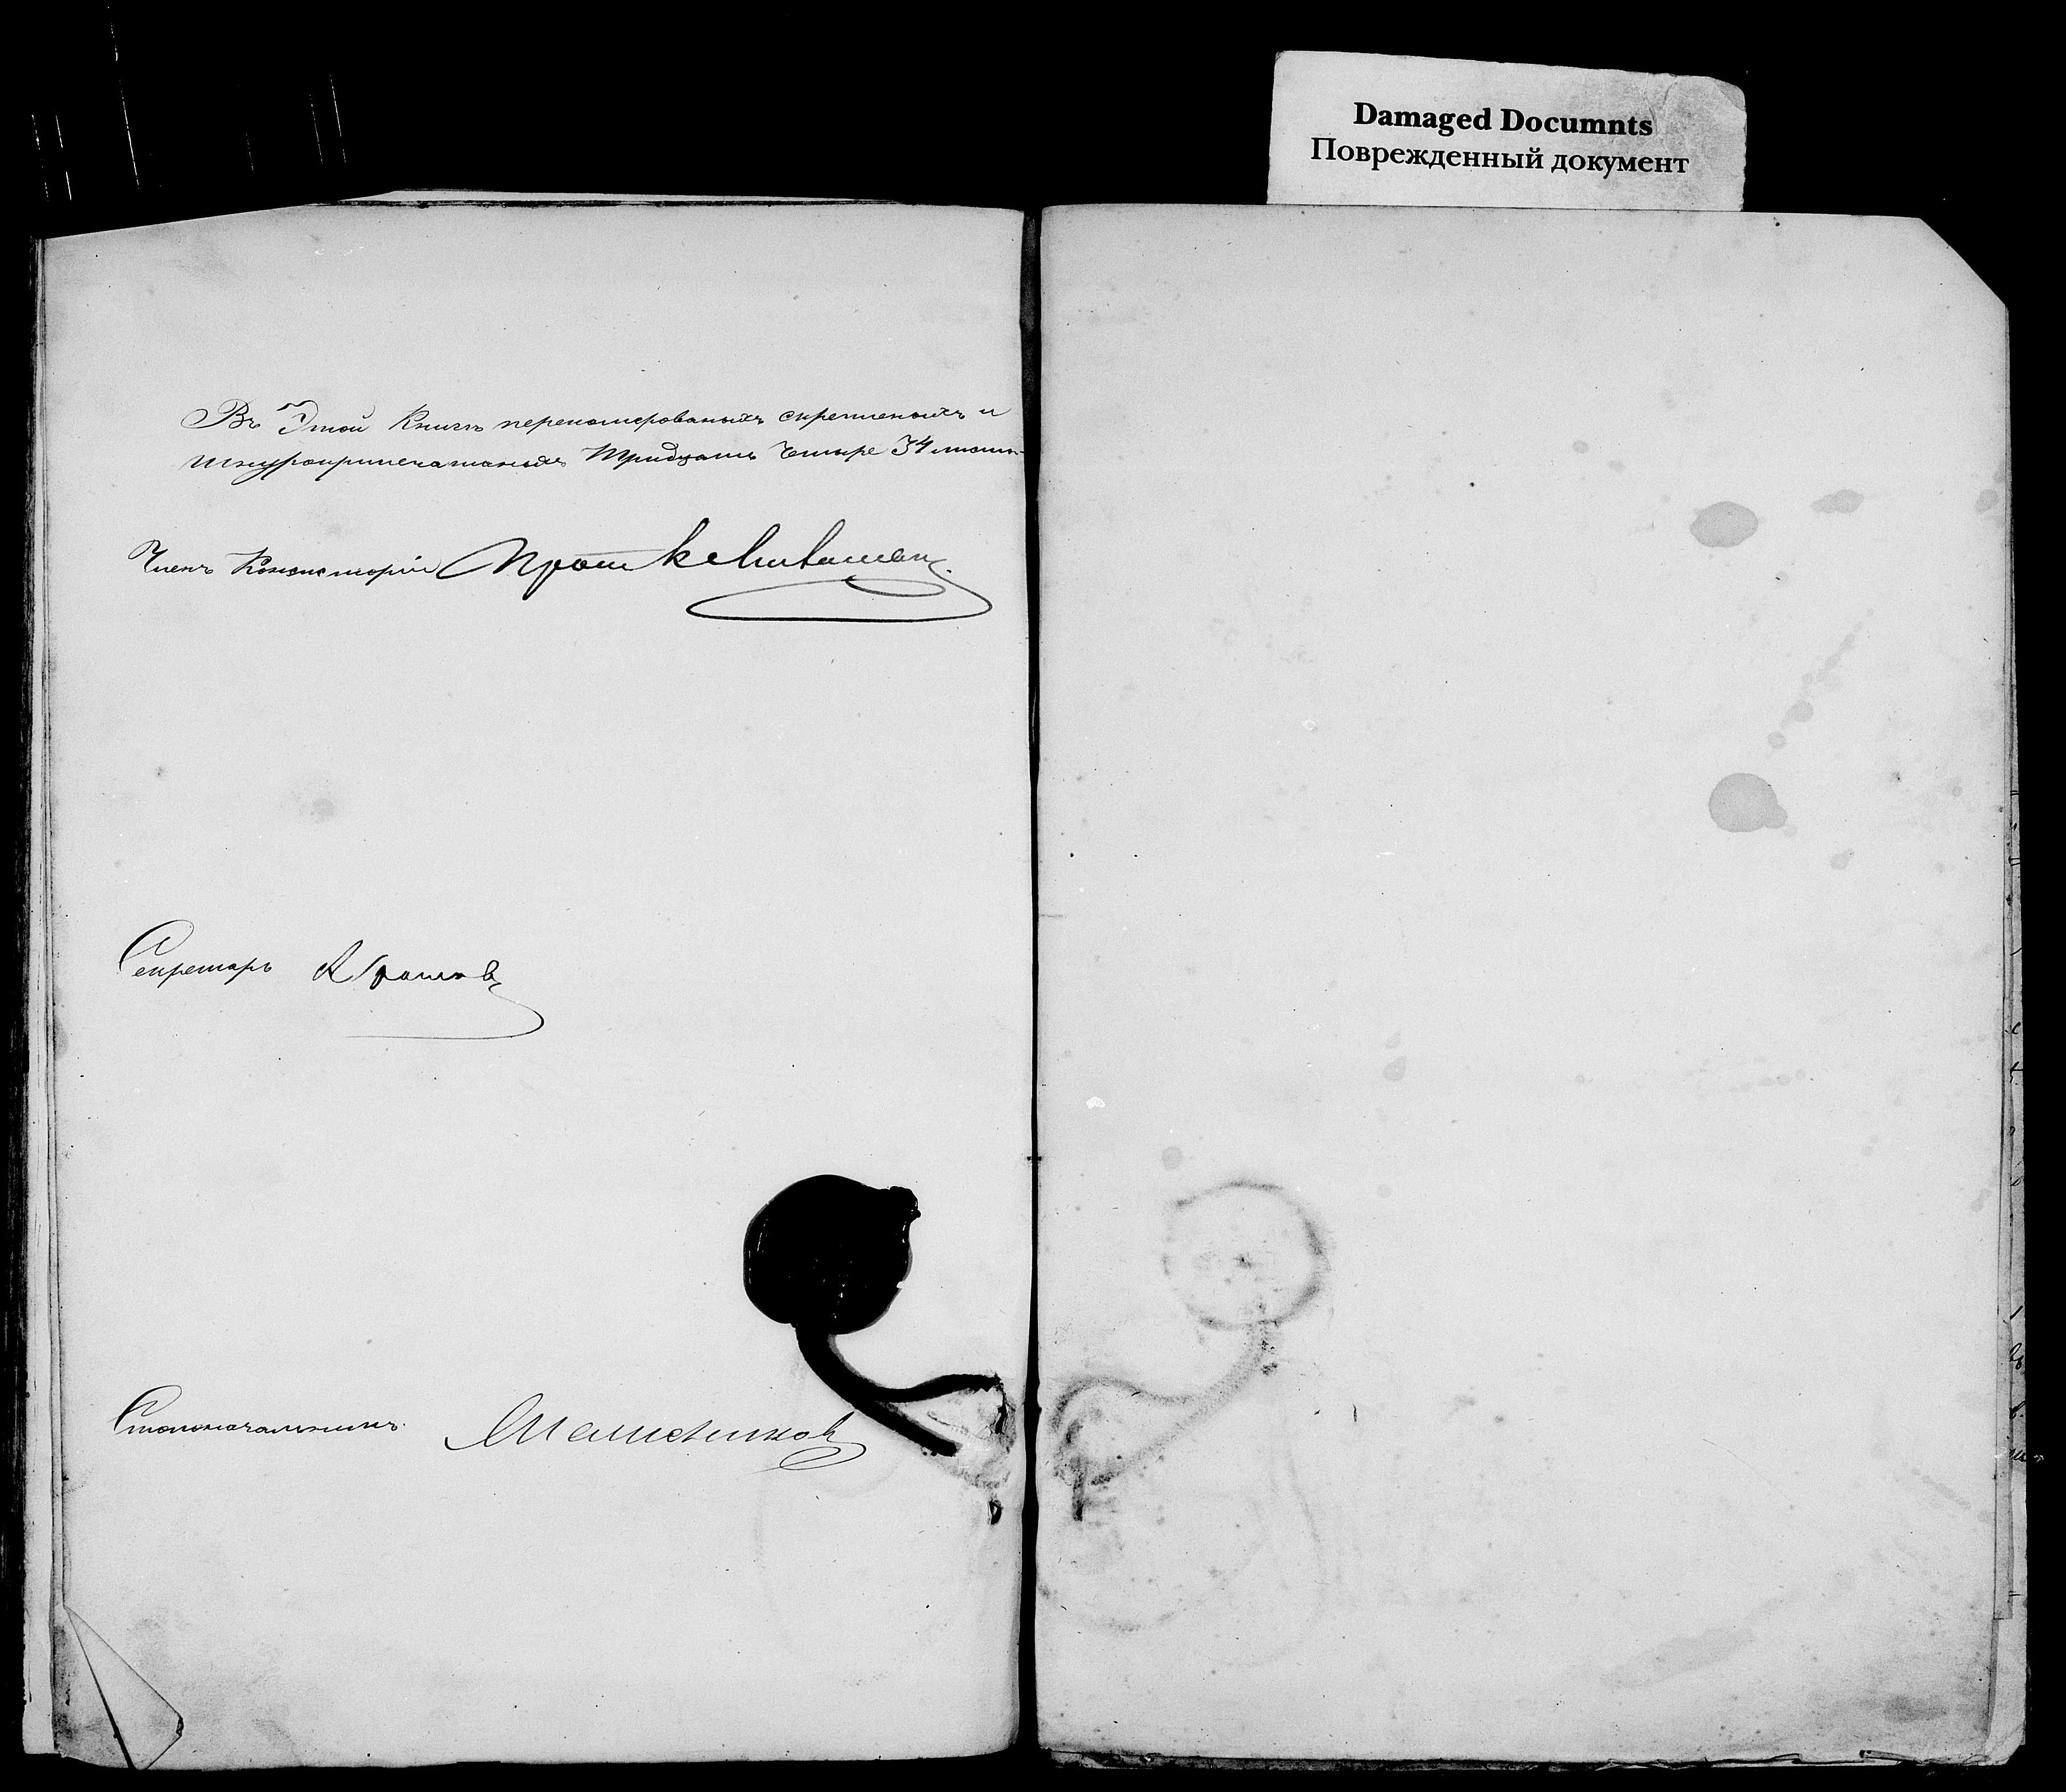 Damaged Documnts
Поврежденный документ
Въ Этой Книгѣ перепомерованыхъ скрепленыхъ и
шнуроприпечатаныхъ Тридцать Четыре 34 листа
Членъ Консисторіи Прот
Секретарь
Столоначальникъ